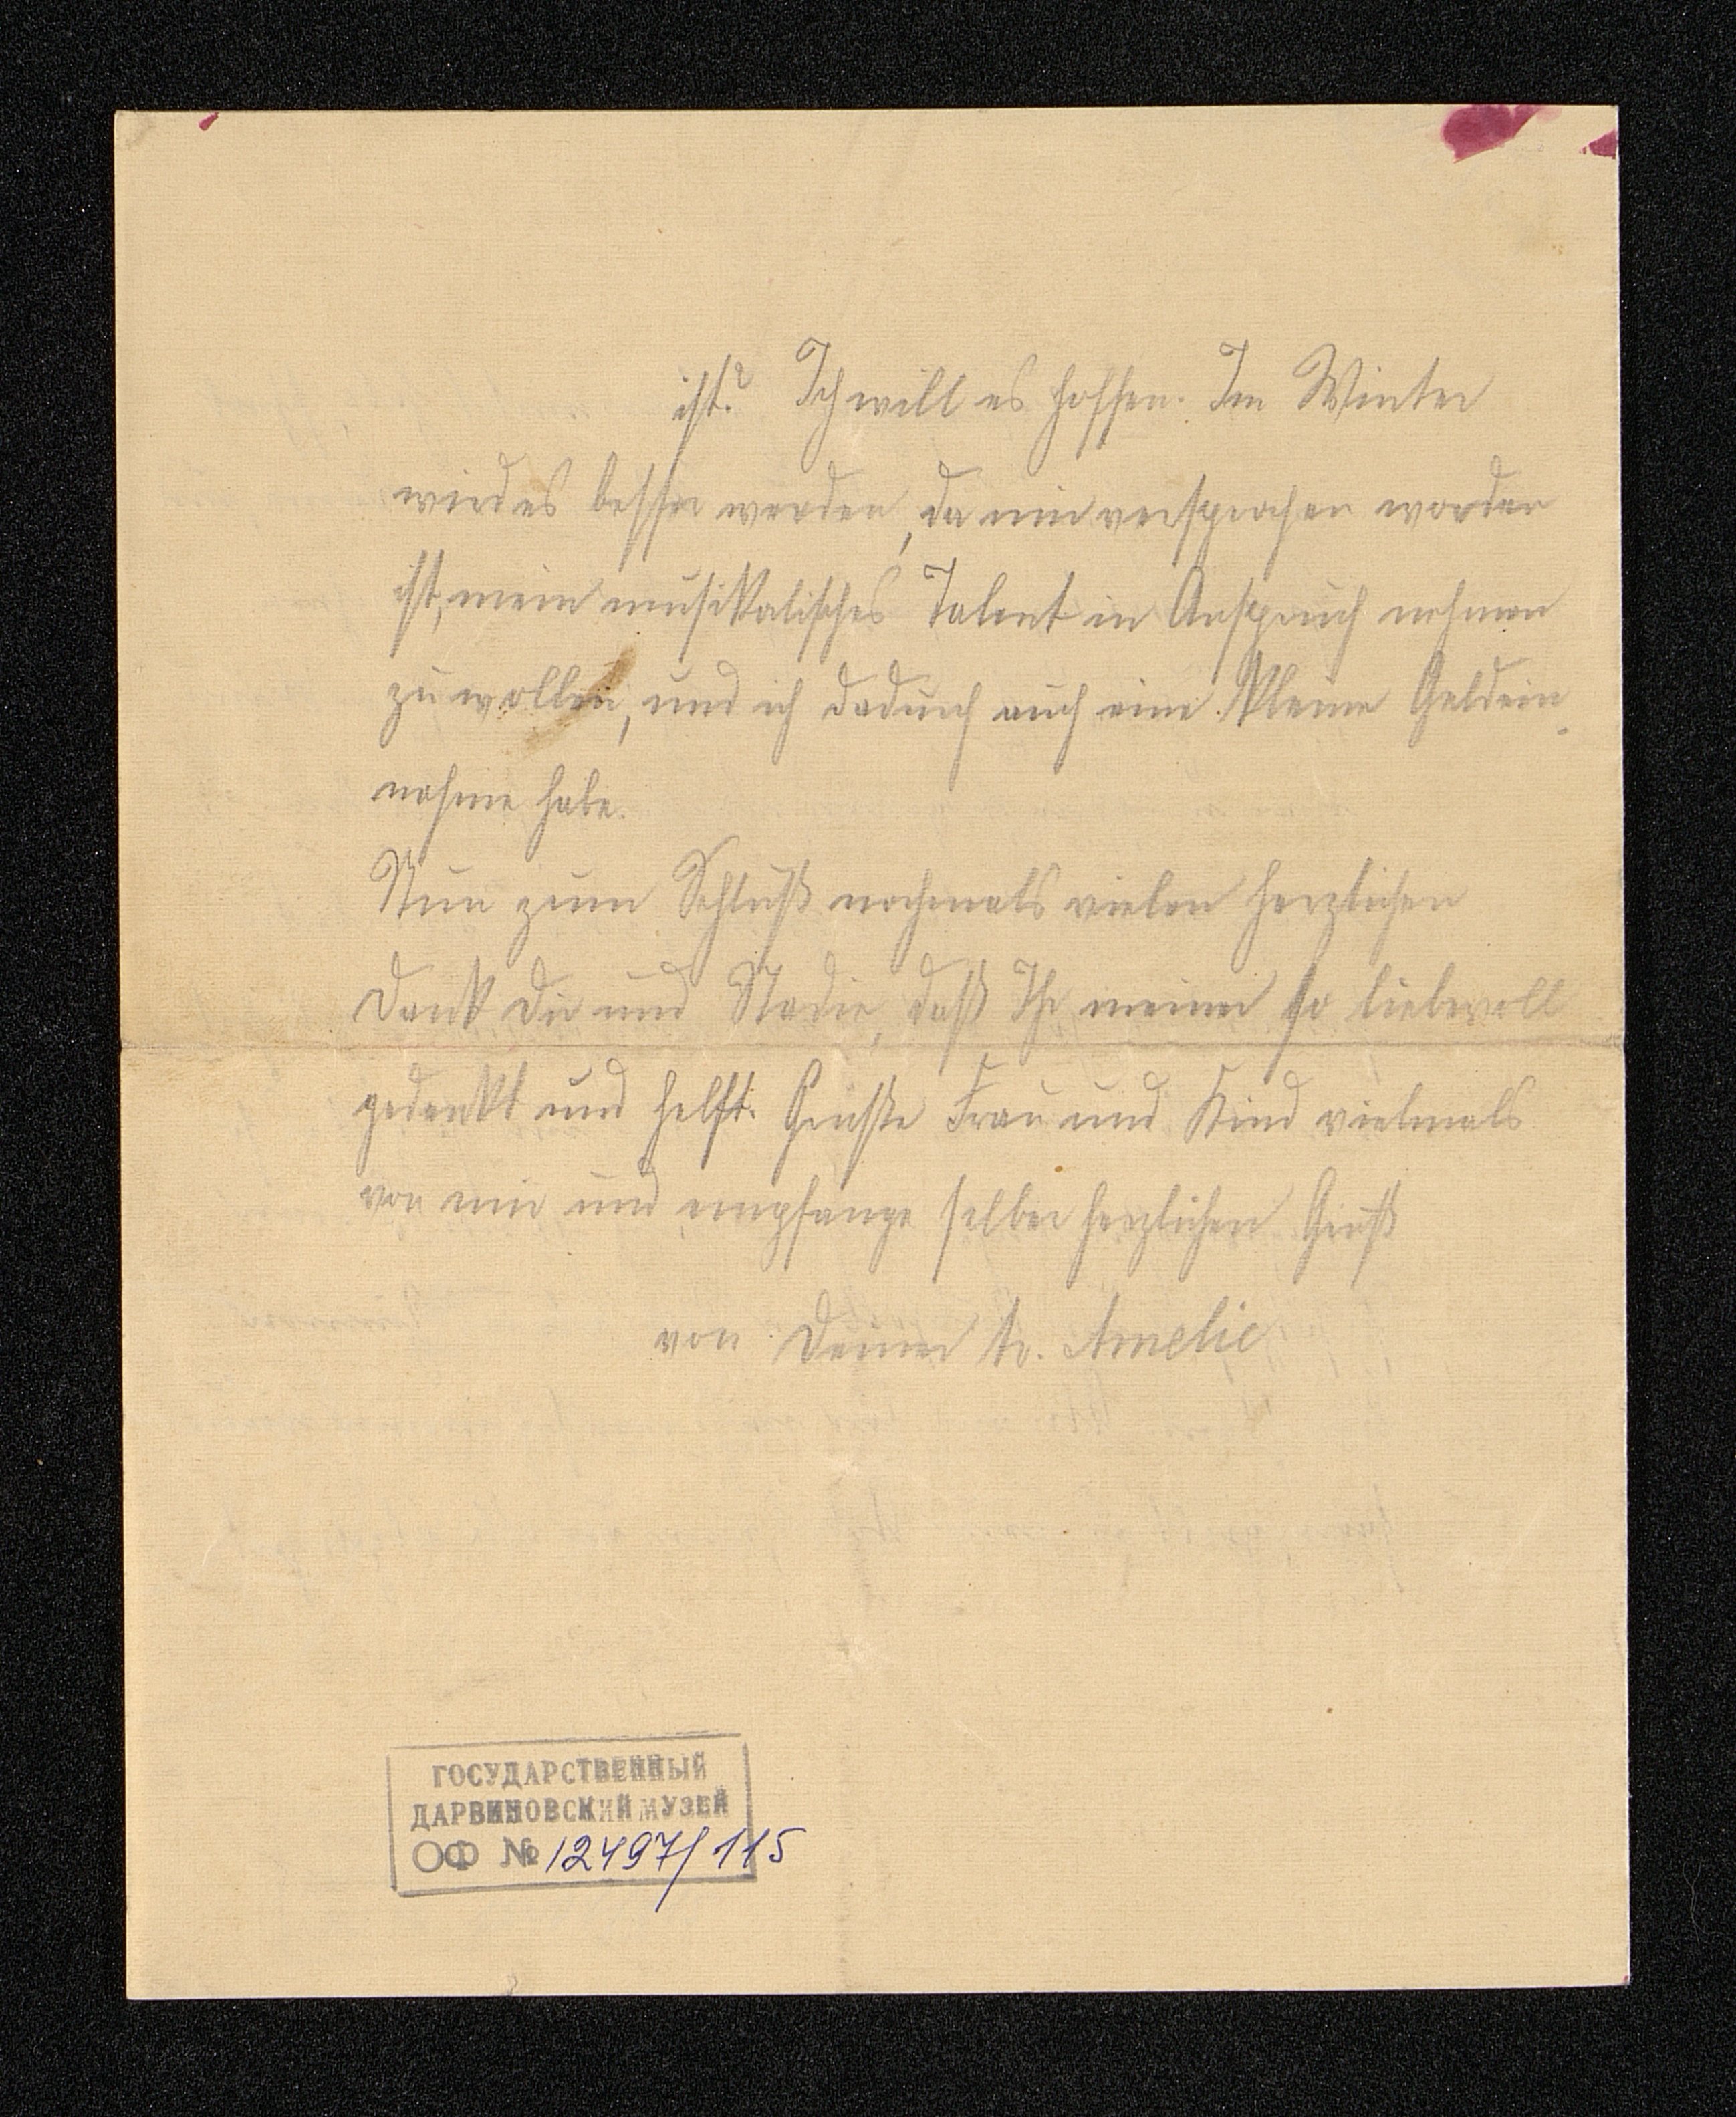 ist? Ich will es hoffen. Im Winter
wird es besser werden, da mir versprochen worden
ist, mein musikalisches Talent in Anspruch nehmen
zu wollen, und ich dadurch auch eine kleine Geldein-
nahme habe.
Nun zum Schluß nochmals vielen herzlichen
Dank Dir und Nadie, daß Ihr meiner so liebevoll
gedenkt und helft. Grüße Frau und Kind vielmals
von mir und empfange selber herzlichen Gruß
von Deiner tr. Amelie
ГОСУДАРСТВЕННЫЙ
ДАРВИНОВСКИЙ МУЗЕЙ
ОФ № 12497/115